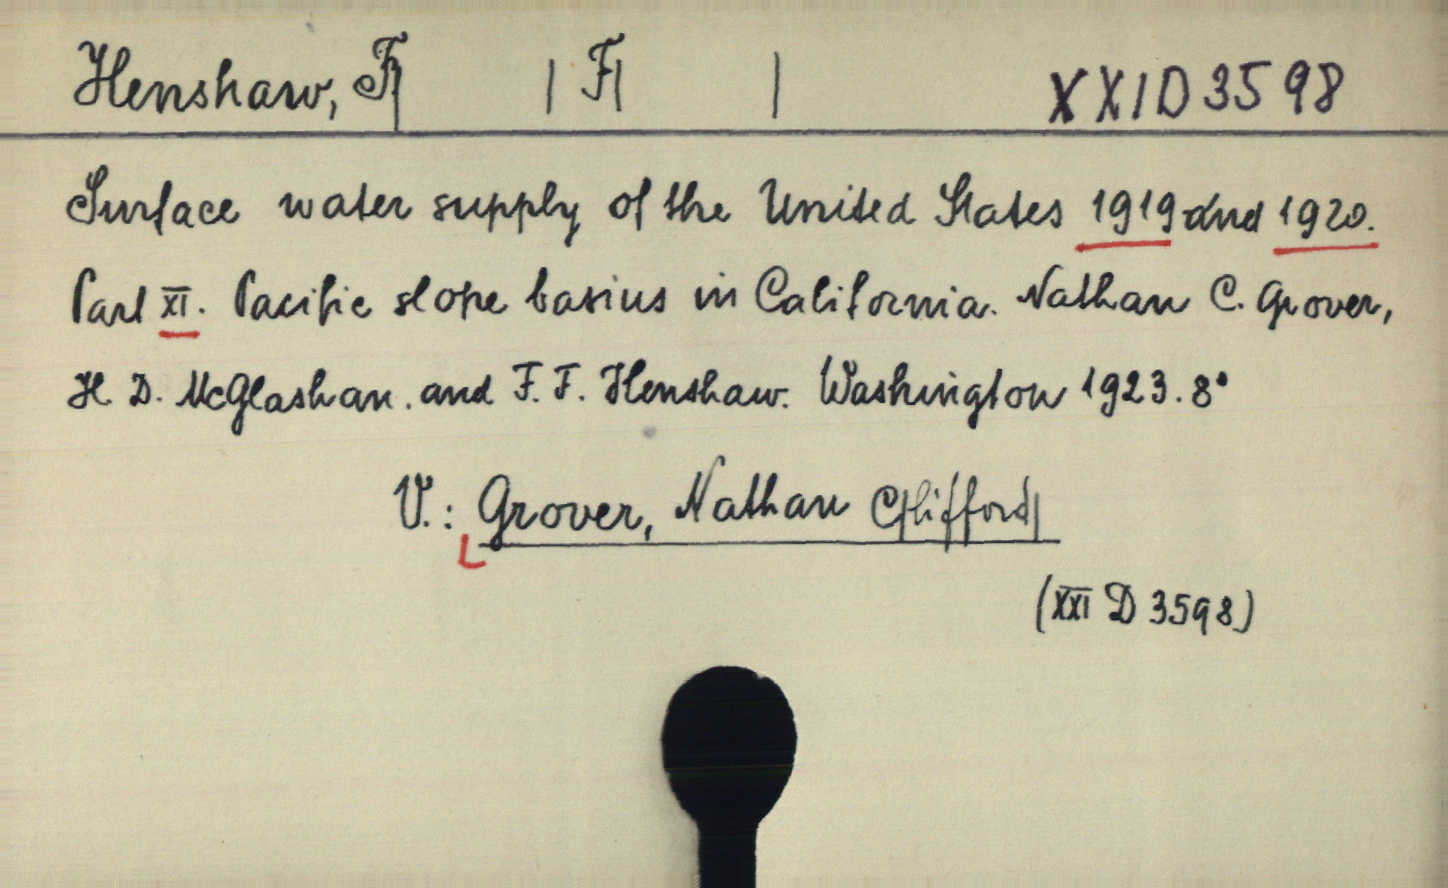 Henshaw, F| | F| | XXID3598
Surface water supply of the United States 1919 and 1920.
Part XI. Pacific slope basins in California. Nathan C. Grover,
H. D. McGlashan. and F. F. Henshaw. Washington 1923. 8°
V.: Grover, Nathan C|lifford|
(XXI D 3598)